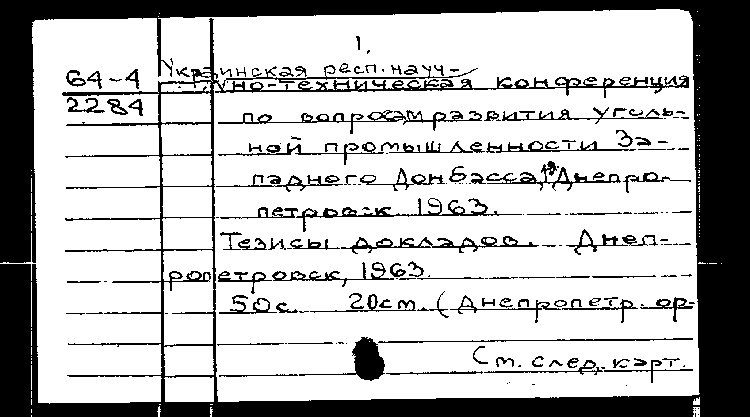 1.
64-4
2284
Украинская респ. науч-
но-техническая конференция
по вопросам развития уголь-
ной промышленности За-
падного Донбасса, Днепро-
петровск 1963.
Тезисы докладов. Днеп-
ропетровск, 1963.
50с. 20см. (Днепропетр. ор-
См. след. карт.